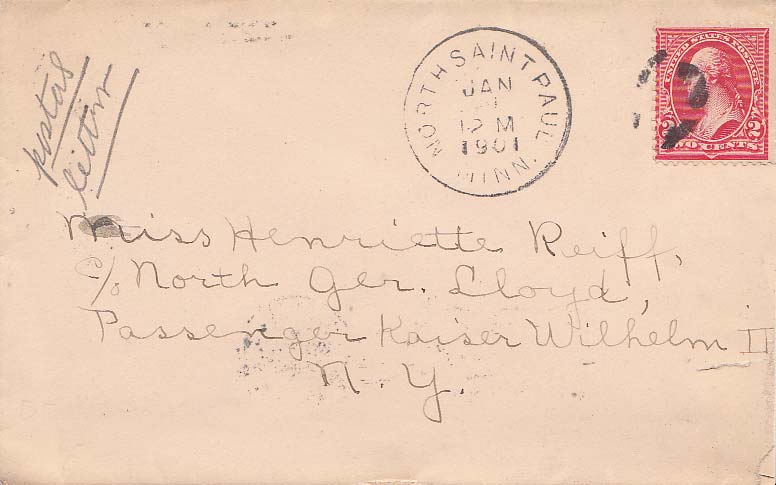 postal
letter
NORTH SAINT PAUL
JAN
1
12 M
1901
MINN.
UNITED STATES POSTAGE
2 2
TWO CENTS
Miss Henriette Reiff,
c/o North Ger. Lloyd,
Passenger Kaiser Wilhelm II
N. Y.